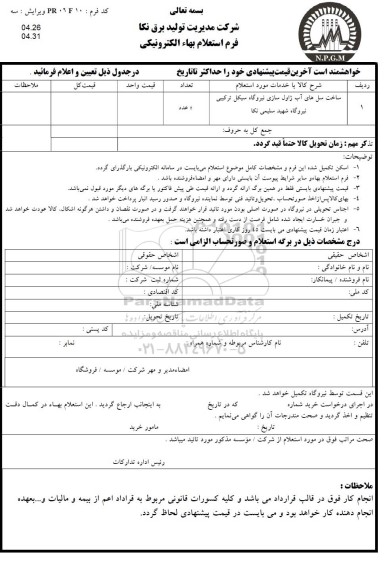 بسمه تعالی
کد فرم : PR ۰۶ F ۱۰ ویرایش : سه
شرکت مدیریت تولید برق نکا
04.26
04.31
فرم استعلام بهاء الکترونیکی
N.P.G.M
خواهشمند است آخرین قیمت پیشنهادی خود را حداکثر تا تاریخ درجدول ذیل تعیین و اعلام فرمائید .
ردیف شرح کالا یا خدمات مورد استعلام تعداد قیمت واحد قیمت کل ملاحظات
۱ ساخت سل های آب ژاول سازی نیروگاه سیکل ترکیبی نیروگاه شهید سلیمی نکا عدد
جمع کل به حروف:
تذکر مهم : زمان تحویل کالا حتماً قید گردد.
توضیحات:
۱- اسکن تکمیل شده این فرم و مشخصات کامل موضوع استعلام می‌بایست در سامانه الکترونیکی بارگذاری گردد.
۲- فرم استعلام بهاءو سایر شرایط پیوست آن بایستی دارای مهر و امضاءفروشنده باشد .
۳- قیمت پیشنهادی بایستی فقط در همین برگه ارائه گردد و ارائه قیمت طی پیش فاکتور یا برگه های دیگر مورد قبول نمی‌باشد.
۴- بهای کالا پس‌از اخذ صورتحساب ،تحویل‌وتائید فنی توسط نماینده نیروگاه و صدور رسید انبار پرداخت خواهد شد .
۵- اجناس تحویلی در نیروگاه در صورت اصلی بودن مورد تائید قرار خواهند گرفت و در صورت نقصان و داشتن هرگونه اشکال، کالا عودت خواهد شد
و جبران خسارت ایجاد شده شامل فرصت از دست رفته و همچنین هزینه حمل بعهده فروشنده می‌باشد .
۶- اعتبار زمان قیمت پیشنهادی می بایست ۴۵ روز کاری اعتبار داشته باشد.
درج مشخصات ذیل در برگه استعلام و صورتحساب الزامی است :
اشخاص حقیقی اشخاص حقوقی
نام و نام خانوادگی : نام موسسه/ شرکت :
نام فروشنده / پیمانکار: شماره ثبت شرکت :
کد ملی: کد اقتصادی :
شناسه ملی
تاریخ تکمیل : تاریخ تحویل:
آدرس: کد پستی :
تلفن : نام کارشناس مربوطه و شماره همراه: نمابر :
ParsNamadData
پایگاه اطلاع رسانی مناقصه و مزایده
۰۲۱-۸۸۳۴۹۶۷۰-۵
امضاءمدیر و مهر شرکت / موسسه / فروشگاه
این قسمت توسط نیروگاه تکمیل خواهد شد .
در اجرای درخواست خرید شماره که در تاریخ به اینجانب ارجاع گردید . این استعلام بهاء در کمال دقت
تنظیم و اخذ گردید و صحت مندرجات آن را گواهی می‌نمایم .
تاریخ : مامور خرید
صحت مراتب فوق در مورد استعلام از شرکت / مؤسسه مذکور مورد تائید میباشد .
رئیس اداره تدارکات
ملاحظات :
انجام کار فوق در قالب قرارداد می باشد و کلیه کسورات قانونی مربوط به قراداد اعم از بیمه و مالیات و...بعهده
انجام دهنده کار خواهد بود و می بایست در قیمت پیشنهادی لحاظ گردد.